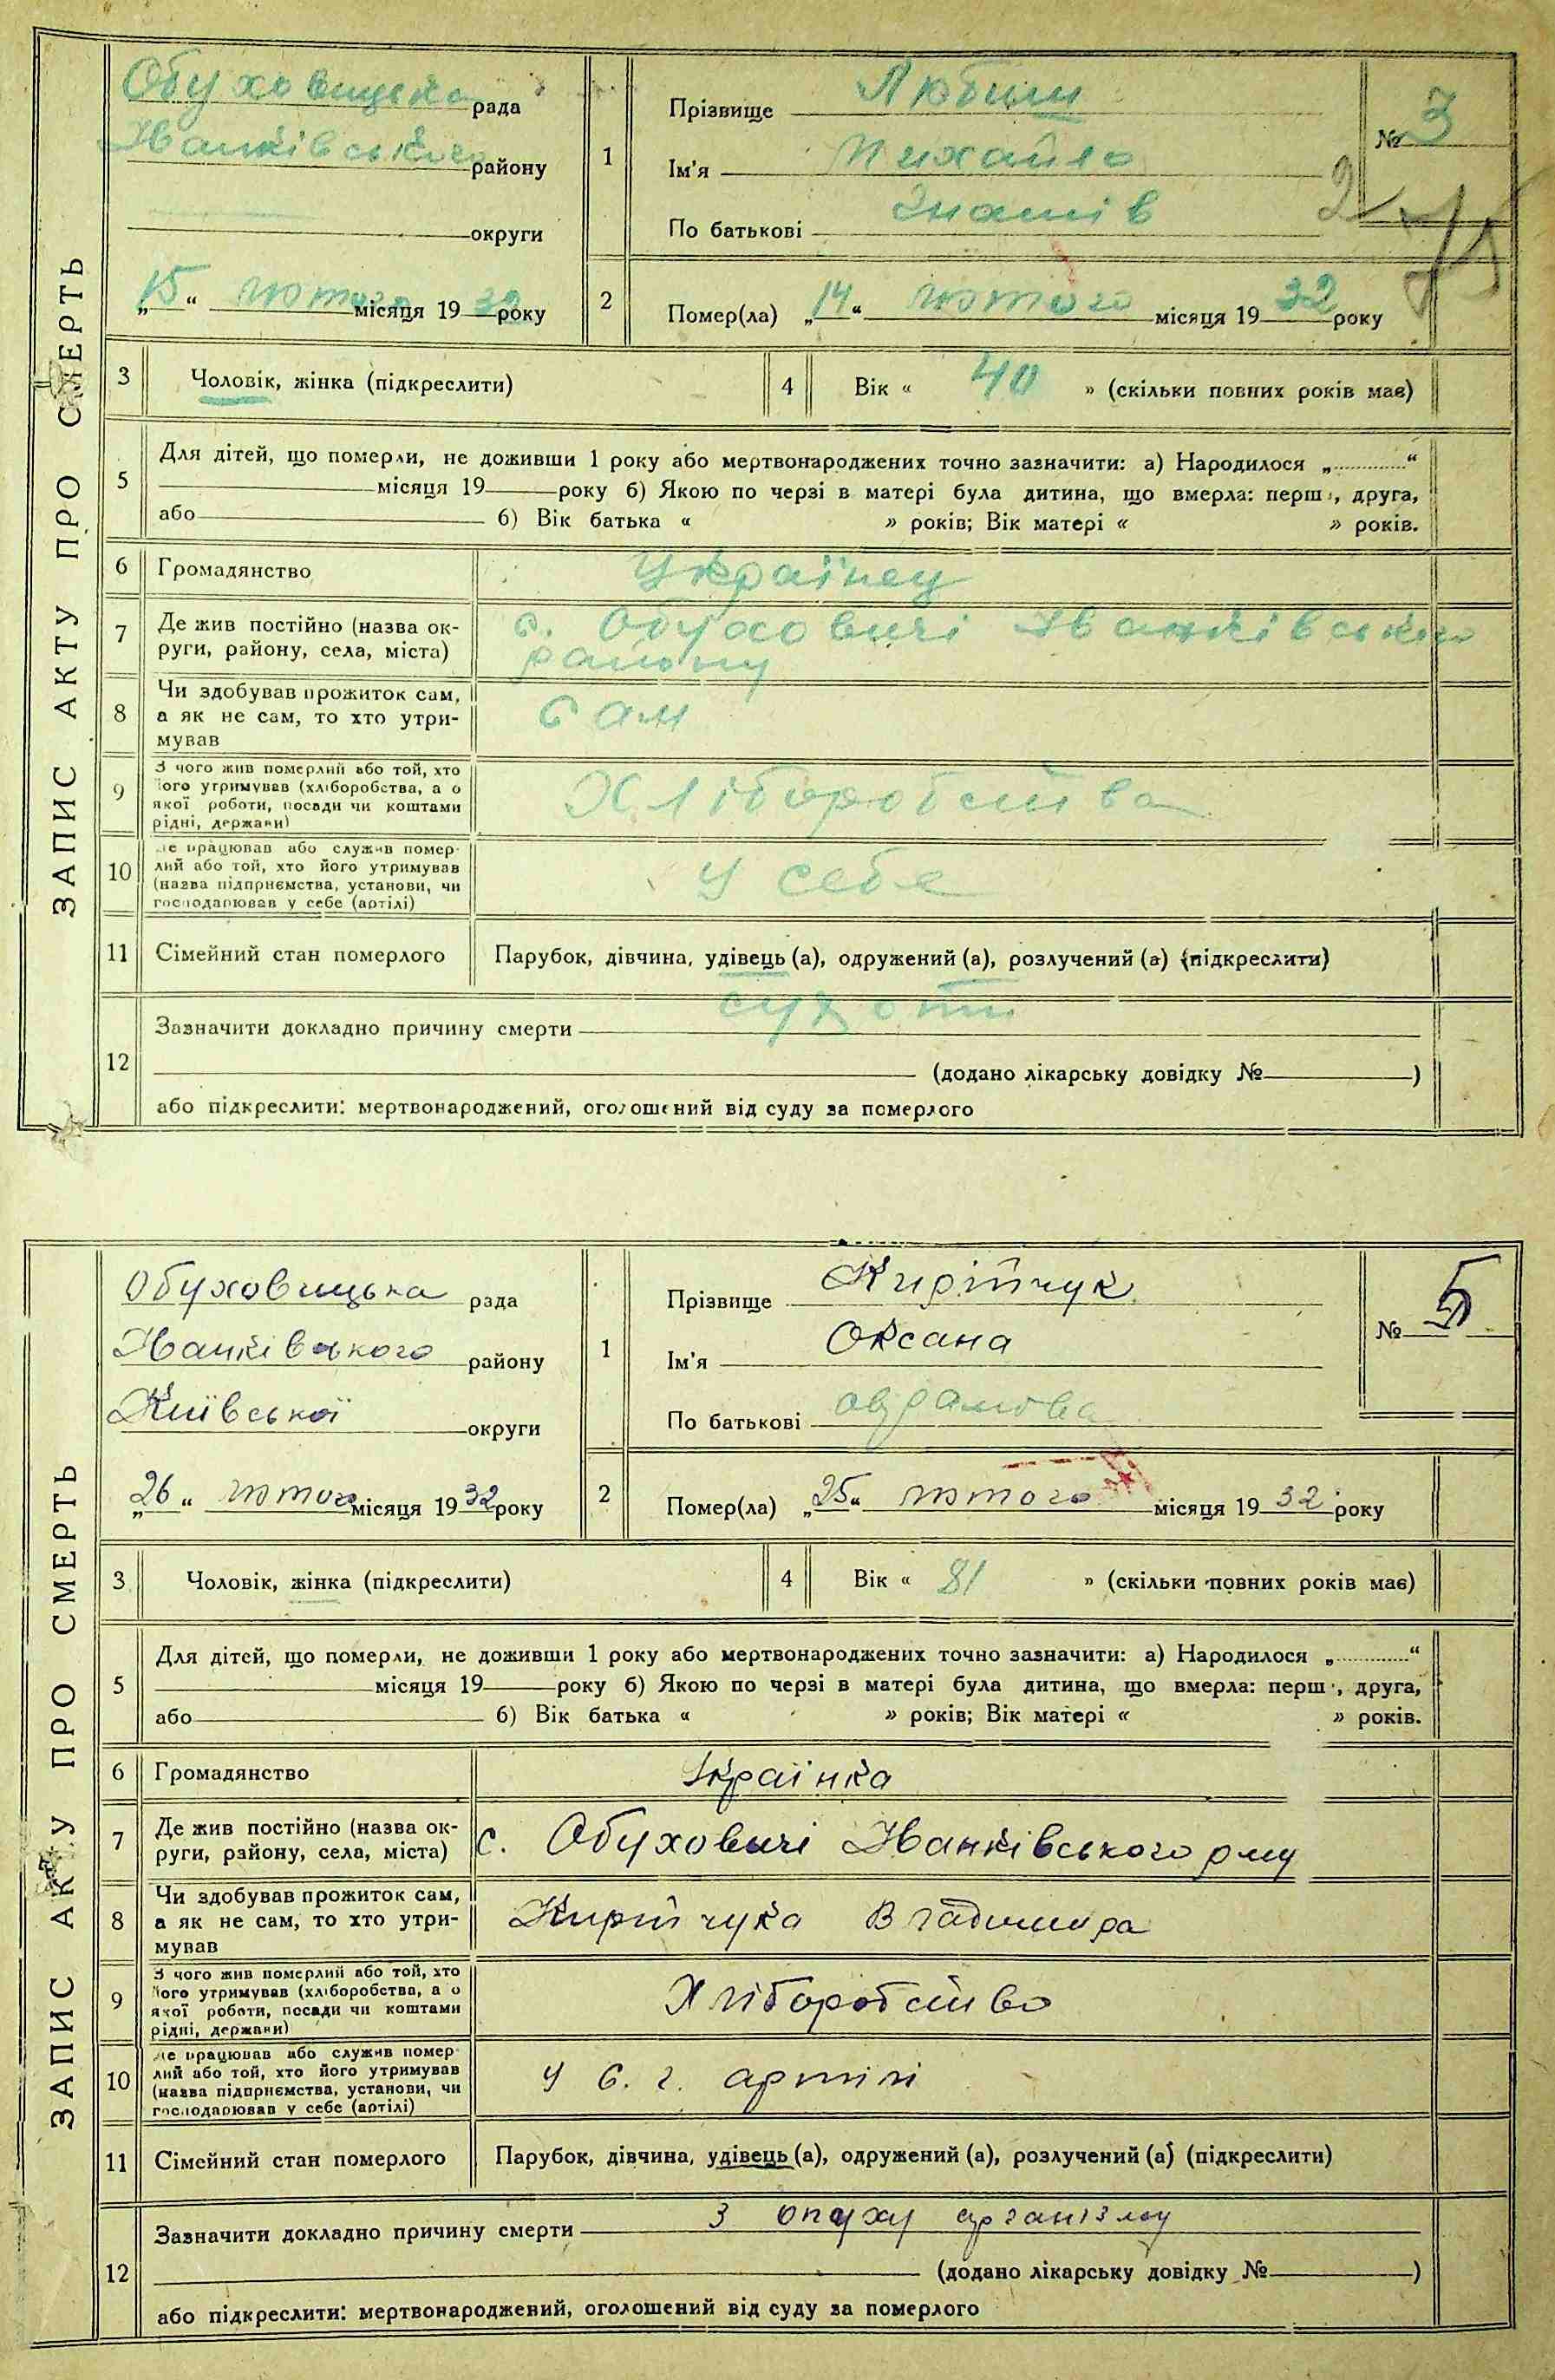 ЗАПИС АКТУ ПРО СМЕРТЬ
Обуховицька рада
Іванківського району
округи
„15“ лютого місяця 1932 року
1
Прізвище Любим
Ім'я Михайло
По батькові
№ 3
2
Помер(ла) „14“ лютого місяця 1932 року
3 Чоловік, жінка (підкреслити)
4 Вік « 40 » (скільки повних років має)
5 Для дітей, що померли, не доживши 1 року або мертвонароджених точно зазначити: а) Народилося „ “
місяця 19 року б) Якою по черзі в матері була дитина, що вмерла: перш, друга,
або б) Вік батька « » років; Вік матері « » років.
6 Громадянство Українец
7 Де жив постійно (назва ок-
руги, району, села, міста)
с. Обуховичі Іванківського
району
8 Чи здобував прожиток сам,
а як не сам, то хто утри-
мував
Сам
9 З чого жив померлий або той, хто
його утримував (хліборобства, а о
якої роботи, посади чи коштами
рідні, держави)
Хліборобства
10 Де працював або служив помер-
лий або той, хто його утримував
(назва підприємства, установи, чи
господарював у себе (артілі)
у себе
11 Сімейний стан померлого Парубок, дівчина, удівець (а), одружений (а), розлучений (а) (підкреслити)
12 Зазначити докладно причину смерти сухоти
(додано лікарську довідку № )
або підкреслити: мертвонароджений, оголошений від суду за померлого
ЗАПИС АКТУ ПРО СМЕРТЬ
Обуховицька рада
Іванківського району
Київської округи
„26“ лютого місяця 1932 року
1
Прізвище Кирійчук
Ім'я Оксана
По батькові
№ 5
2
Помер(ла) „25“ лютого місяця 1932 року
3 Чоловік, жінка (підкреслити)
4 Вік « 81 » (скільки повних років має)
5 Для дітей, що померли, не доживши 1 року або мертвонароджених точно зазначити: а) Народилося „ “
місяця 19 року б) Якою по черзі в матері була дитина, що вмерла: перш, друга,
або б) Вік батька « » років; Вік матері « » років.
6 Громадянство Українка
7 Де жив постійно (назва ок-
руги, району, села, міста)
с. Обуховичі Іванківського р-ну
8 Чи здобував прожиток сам,
а як не сам, то хто утри-
мував
Кирійчука Владимира
9 З чого жив померлий або той, хто
його утримував (хліборобства, а о
якої роботи, посади чи коштами
рідні, держави)
Хліборобство
10 Де працював або служив помер-
лий або той, хто його утримував
(назва підприємства, установи, чи
господарював у себе (артілі)
у с. г. артілі
11 Сімейний стан померлого Парубок, дівчина, удівець (а), одружений (а), розлучений (а) (підкреслити)
12 Зазначити докладно причину смерти З опуху організму
(додано лікарську довідку № )
або підкреслити: мертвонароджений, оголошений від суду за померлого